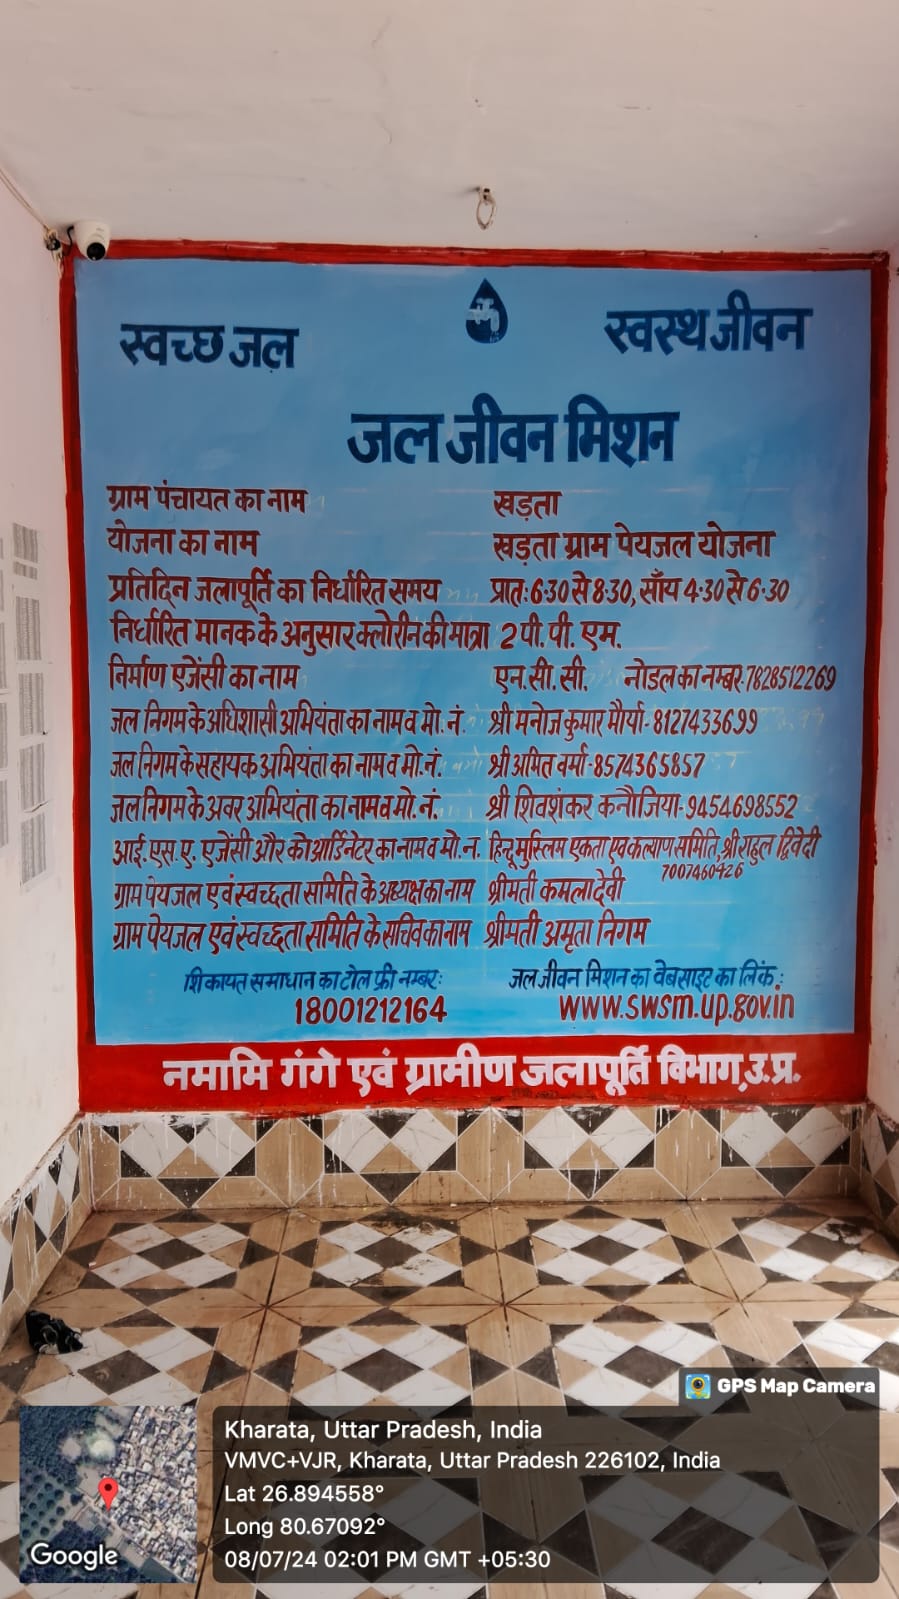 स्वच्छ जल
स्वस्थ जीवन
जल जीवन मिशन
ग्राम पंचायत का नाम खड़ता
योजना का नाम खड़ता ग्राम पेयजल योजना
प्रतिदिन जलापूर्ति का निर्धारित समय प्रातः 6·30 से 8·30, साँय 4·30 से 6·30
निर्धारित मानक के अनुसार क्लोरीन की मात्रा 2 पी. पी. एम.
निर्माण एजेंसी का नाम एन. सी. सी. नोडल का नम्बर-7828512269
जल निगम के अधिशासी अभियंता का नाम व मो. नं. श्री मनोज कुमार मौर्या- 8127433699
जल निगम के सहायक अभियंता का नाम व मो. नं. श्री अमित वर्मा- 8574365857
जल निगम के अवर अभियंता का नाम व मो. नं. श्री शिवशंकर कनौजिया- 9454698552
आई. एस. ए. एजेंसी और को आर्डिनेटर का नाम व मो. न. हिन्दू मुस्लिम एकता एव कल्याण समिति, श्री राहुल द्विवेदी
7007460426
ग्राम पेयजल एवं स्वच्छता समिति के अध्यक्ष का नाम श्रीमती कमला देवी
ग्राम पेयजल एवं स्वच्छता समिति के सचिव का नाम श्रीमती अमृता निगम
शिकायत समाधान का टोल फ्री नम्बर: जल जीवन मिशन का वेबसाइट का लिंक:
18001212164 www.swsm.up.gov.in
नमामि गंगे एवं ग्रामीण जलापूर्ति विभाग, उ.प्र.
GPS Map Camera
Kharata, Uttar Pradesh, India
VMVC+VJR, Kharata, Uttar Pradesh 226102, India
Lat 26.894558°
Long 80.67092°
08/07/24 02:01 PM GMT +05:30
Google